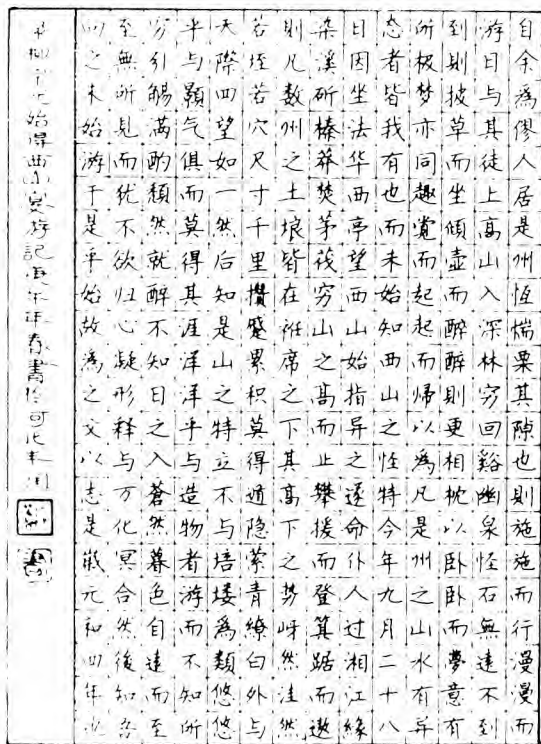 自余為僇人居是州恆惴栗其隙也則施施而行漫漫而
游日与其徒上高山入深林穷回谿幽泉怪石無遠不到
到則披草而坐傾壺而醉醉則更相枕以卧卧而夢意有
所极梦亦同趣覚而起起而帰以為凡是州之山水有异
态者皆我有也而未始知西山之怪特今年九月二十八
日因坐法华西亭望西山始指异之遂命仆人过湘江緣
染溪斫榛莽焚茅茷穷山之高而止攀援而登箕踞而遨
則凡数州之土壤皆在衽席之下其高下之势岈然洼然
若垤若穴尺寸千里攢蹙累积莫得遁隐萦青繚白外与
天際四望如一然后知是山之特立不与培塿為類悠悠
乎与顥气俱而莫得其涯洋洋乎与造物者游而不知所
穷引觴满酌頹然就醉不知日之入蒼然暮色自遠而至
至無所見而犹不欲归心凝形释与万化冥合然後知吾
向之未始游于是乎始故為之文以志是歲元和四年也
柳宗元始得西山宴游記年春書於可化